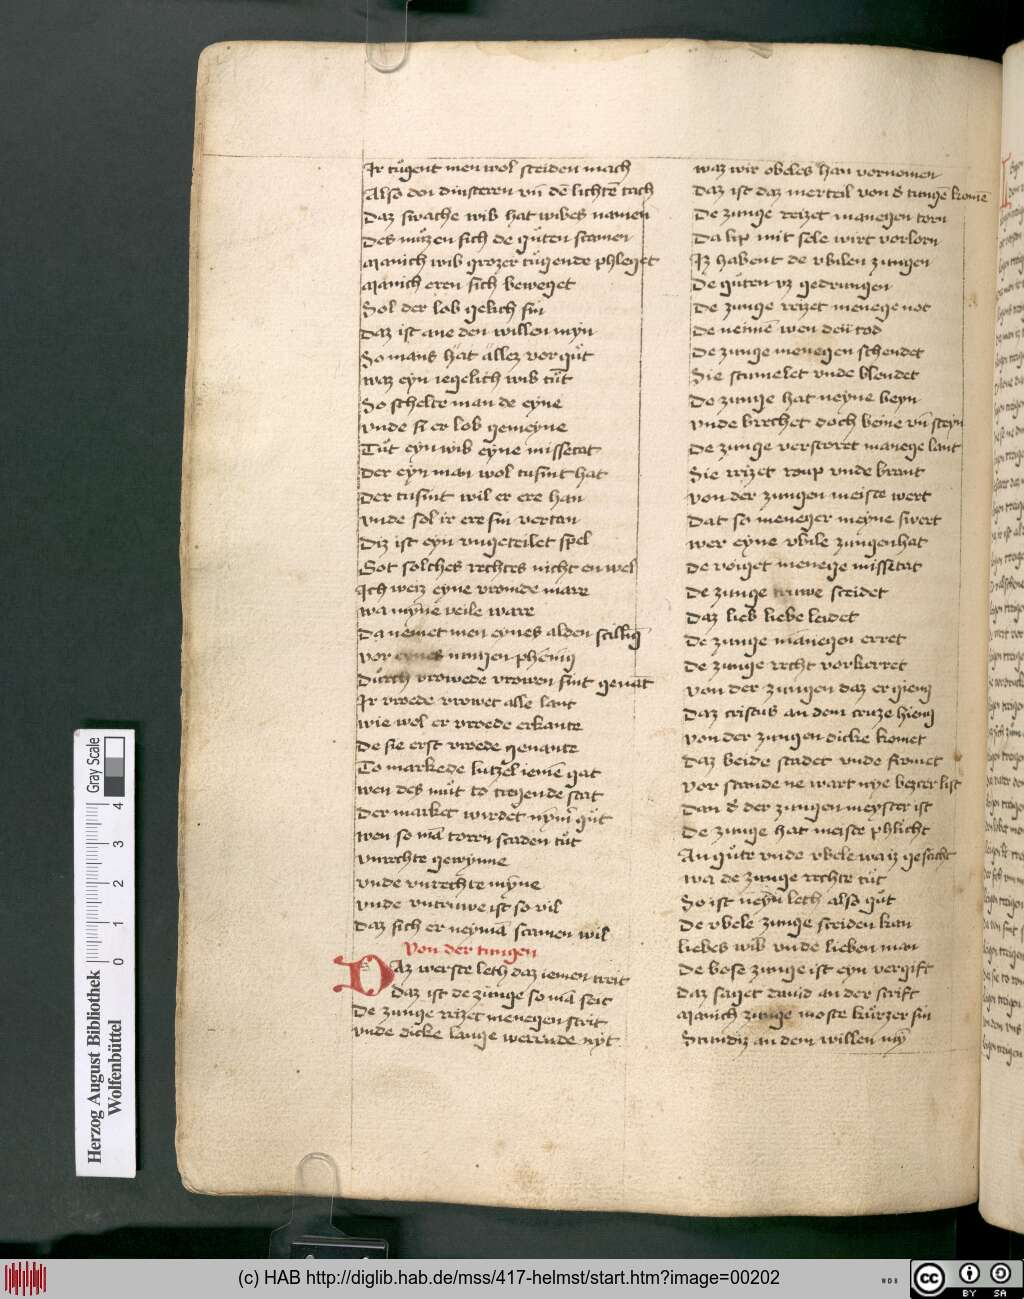 Ir tůgent men wol sceiden mach
Also den dinsteren vn̄ dē lichtē tach
Daz swache wib hat wibes namen
Des můzen sich de gůten scamen
Manich wib grozer tůgende phleget
Manich eren sich beweget
Sol der lob gelich sin
Daz ist ane den willen myn
So mans hat allez vor gůt
waz eyn iegelich wib tůt
So schelte man de eyne
vnde si er lob gemeyne
Tůt eyn wib eyne missetat
Der eyn man wol tusint hat
Der tusint wil er ere han
vnde sol ir ere sin vertan
Diz ist eyn vngeteilet spel
Got solches rechtes nicht en wel
Ich weiz eyne vromde mare
wa myne veile ware
Da nemet men eynes alden scillīg
vor eynes nuwen phenīg
Důrch vrowede vrowen sint genāt
Ir vroede vrowet alle lant
wie wol er vroede erkante
De sie erst vroede genante
To markede lutzel iemē gat
wen des můt to tregende stat
Der market wirdet nym̄ gůt
wen so mā torrn scaden tůt
vnrechte gewynne
vnde vnrechte myne
vnde vntruwe ist so vil
Daz sich er neymā scamen wil
Von der tungen
Daz werste leth daz iemen treit
Daz ist de zunge so mā seit
De zunge reizet menegen strit
vnde dicke lange werende nyt
waz wir obeles han vornomen
Daz ist daz merteil von d' tungē komē
De zunge reizet manegen torn
Da lip mit sele wirt vorlorn
Iz habent de vbilen zungen
De gůten vz gedrungen
De zunge reizet menege not
De nemē wen den tod
De zunge menegen schendet
Sie stumelet vnde blendet
De zunge hat neyne beyn
vnde brechet doch beine vn̄ steyn
De zunge versteret manege lant
Sie reizet roup vnde brant
von der zungen meiste wert
Dat so meneger meyne swert
wer eyne vbile zungen hat
De voiget menege missetat
De zunge truwe sceidet
Daz lieb liebe leidet
De zunge manegen erret
De zunge recht vorkerret
von der zungen daz ergieng
Daz cristus an dem cruze hieng
von der zungen dicke komet
Daz beide scadet vnde fromet
vor scande ne wart nye bezcer list
Dan d' der zungen meyster ist
De zunge hat meiste phlicht
An gůte vnde vbele waiz geschicht
wa de zunge rechte tůt
So ist neyn leth also gůt
De vbele zunge sceiden kan
liebes wib vnde lieben man
De bose zunge ist eyn vergift
Daz saget dauid an der scrift
Manich zunge moste kůrzer sin
Stundiz an dem willen my̅
Herzog August Bibliothek
Wolfenbüttel
Gray Scale
0 1 2 3 4
(c) HAB http://diglib.hab.de/mss/417-helmst/start.htm?image=00202
WDB
cc BY SA